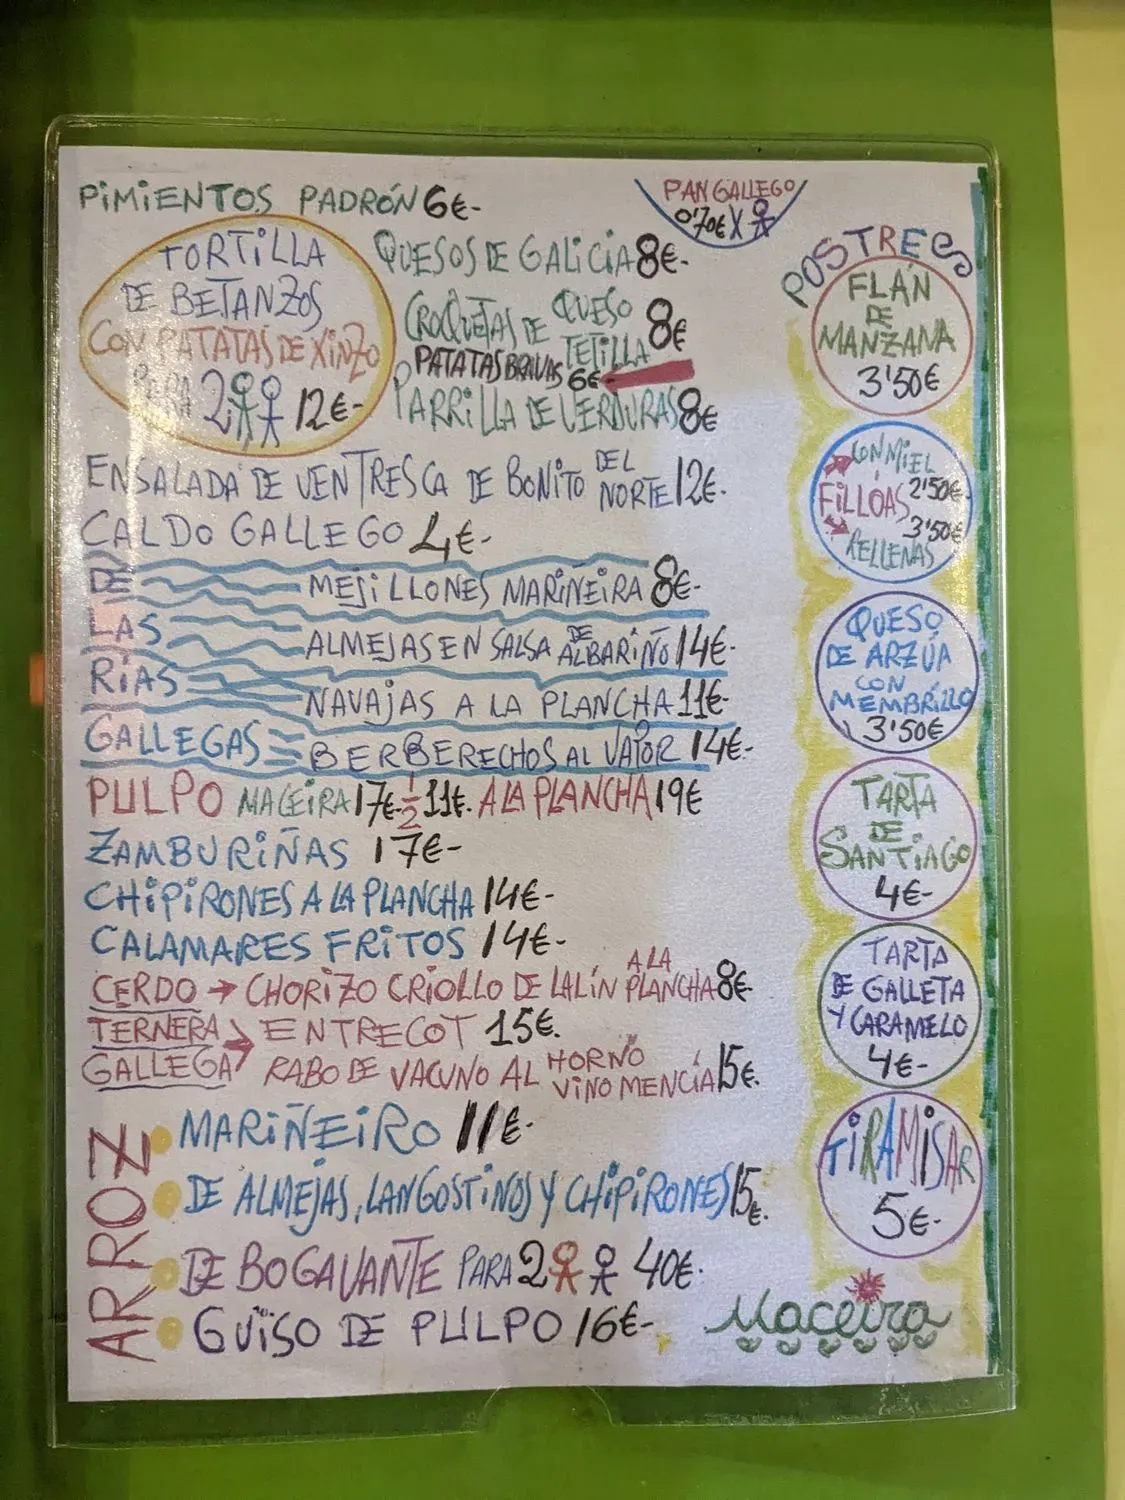 PIMIENTOS PADRÓN 6€-
PAN GALLEGO
0'70€ X
TORTILLA
DE BETANZOS
CON PATATAS DE XINZO
PARA 2 12€-
QUESOS DE GALICIA 8€-
CROQUETAS DE QUESO
TETILLA 8€
PATATAS BRAVAS 6€
PARRILLA DE VERDURAS 8€
ENSALADA DE VENTRESCA DE BONITO DEL
NORTE 12€-
CALDO GALLEGO 4€-
DE
LAS
RÍAS
GALLEGAS
MEJILLONES MARIÑEIRA 8€-
ALMEJAS EN SALSA DE ALBARIÑO 14€-
NAVAJAS A LA PLANCHA 11€-
BERBERECHOS AL VAPOR 14€-
PULPO MACEIRA 17€- 1/2 11€. A LA PLANCHA 19€
ZAMBURIÑAS 17€-
CHIPIRONES A LA PLANCHA 14€-
CALAMARES FRITOS 14€-
CERDO → CHORIZO CRIOLLO DE LALÍN A LA PLANCHA 8€-
TERNERA
GALLEGA
ENTRECOT 15€.
RABO DE VACUNO AL HORNO
VINO MENCÍA 15€.
ARROZ
MARIÑEIRO 11€-
DE ALMEJAS, LANGOSTINOS Y CHIPIRONES 15€.
DE BOGAVANTE PARA 2 40€-
GUISO DE PULPO 16€-
POSTRES
FLAN
DE
MANZANA
3'50€
FILLOAS
CON MIEL
2'50€-
3'50€
RELLENAS
QUESO
DE ARZÚA
CON
MEMBRILLO
3'50€
TARTA
DE
SANTIAGO
4€-
TARTA
DE GALLETA
Y CARAMELO
4€-
TIRAMISAR
5€-
Maceira